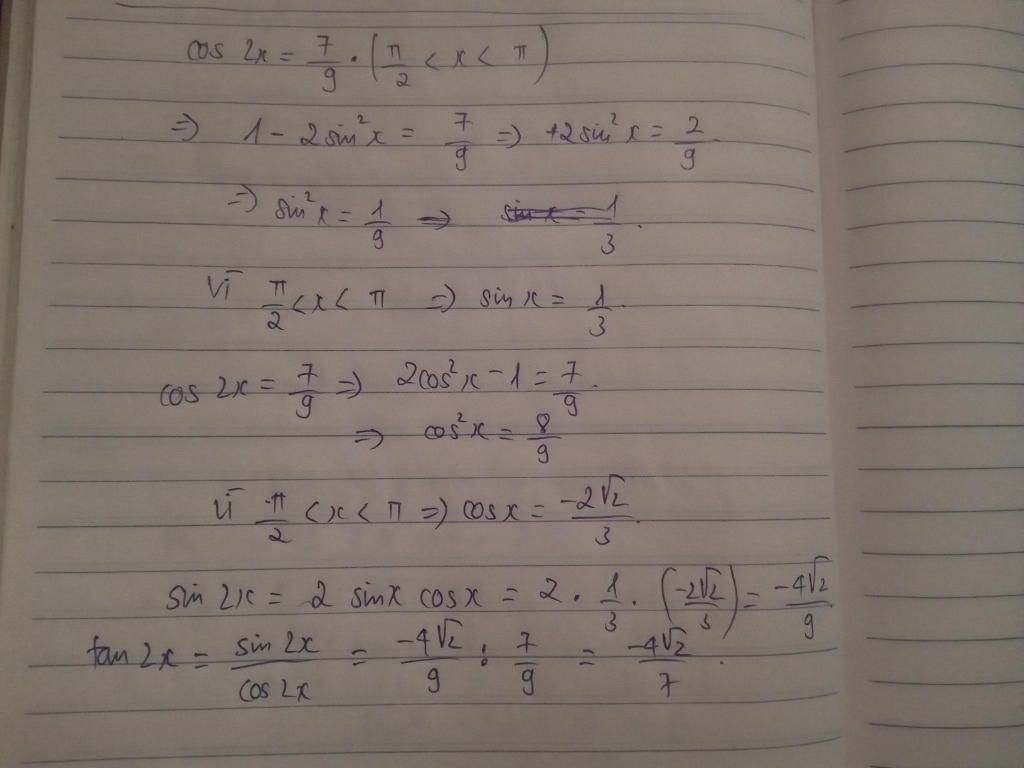 cos 2x = 7/9 . (π/2 < x < π)
=> 1 - 2sin²x = 7/9 => +2sin²x = 2/9.
=> sin²x = 1/9 => sin x = 1/3.
Vì π/2 < x < π => sin x = 1/3.
cos 2x = 7/9 => 2cos²x - 1 = 7/9.
=> cos²x = 8/9
Vì π/2 < x < π => cos x = -2√2/3.
sin 2x = 2 sin x cos x = 2 . 1/3 . (-2√2/3) = -4√2/9.
tan 2x = sin 2x/cos 2x = -4√2/9 : 7/9 = -4√2/7.